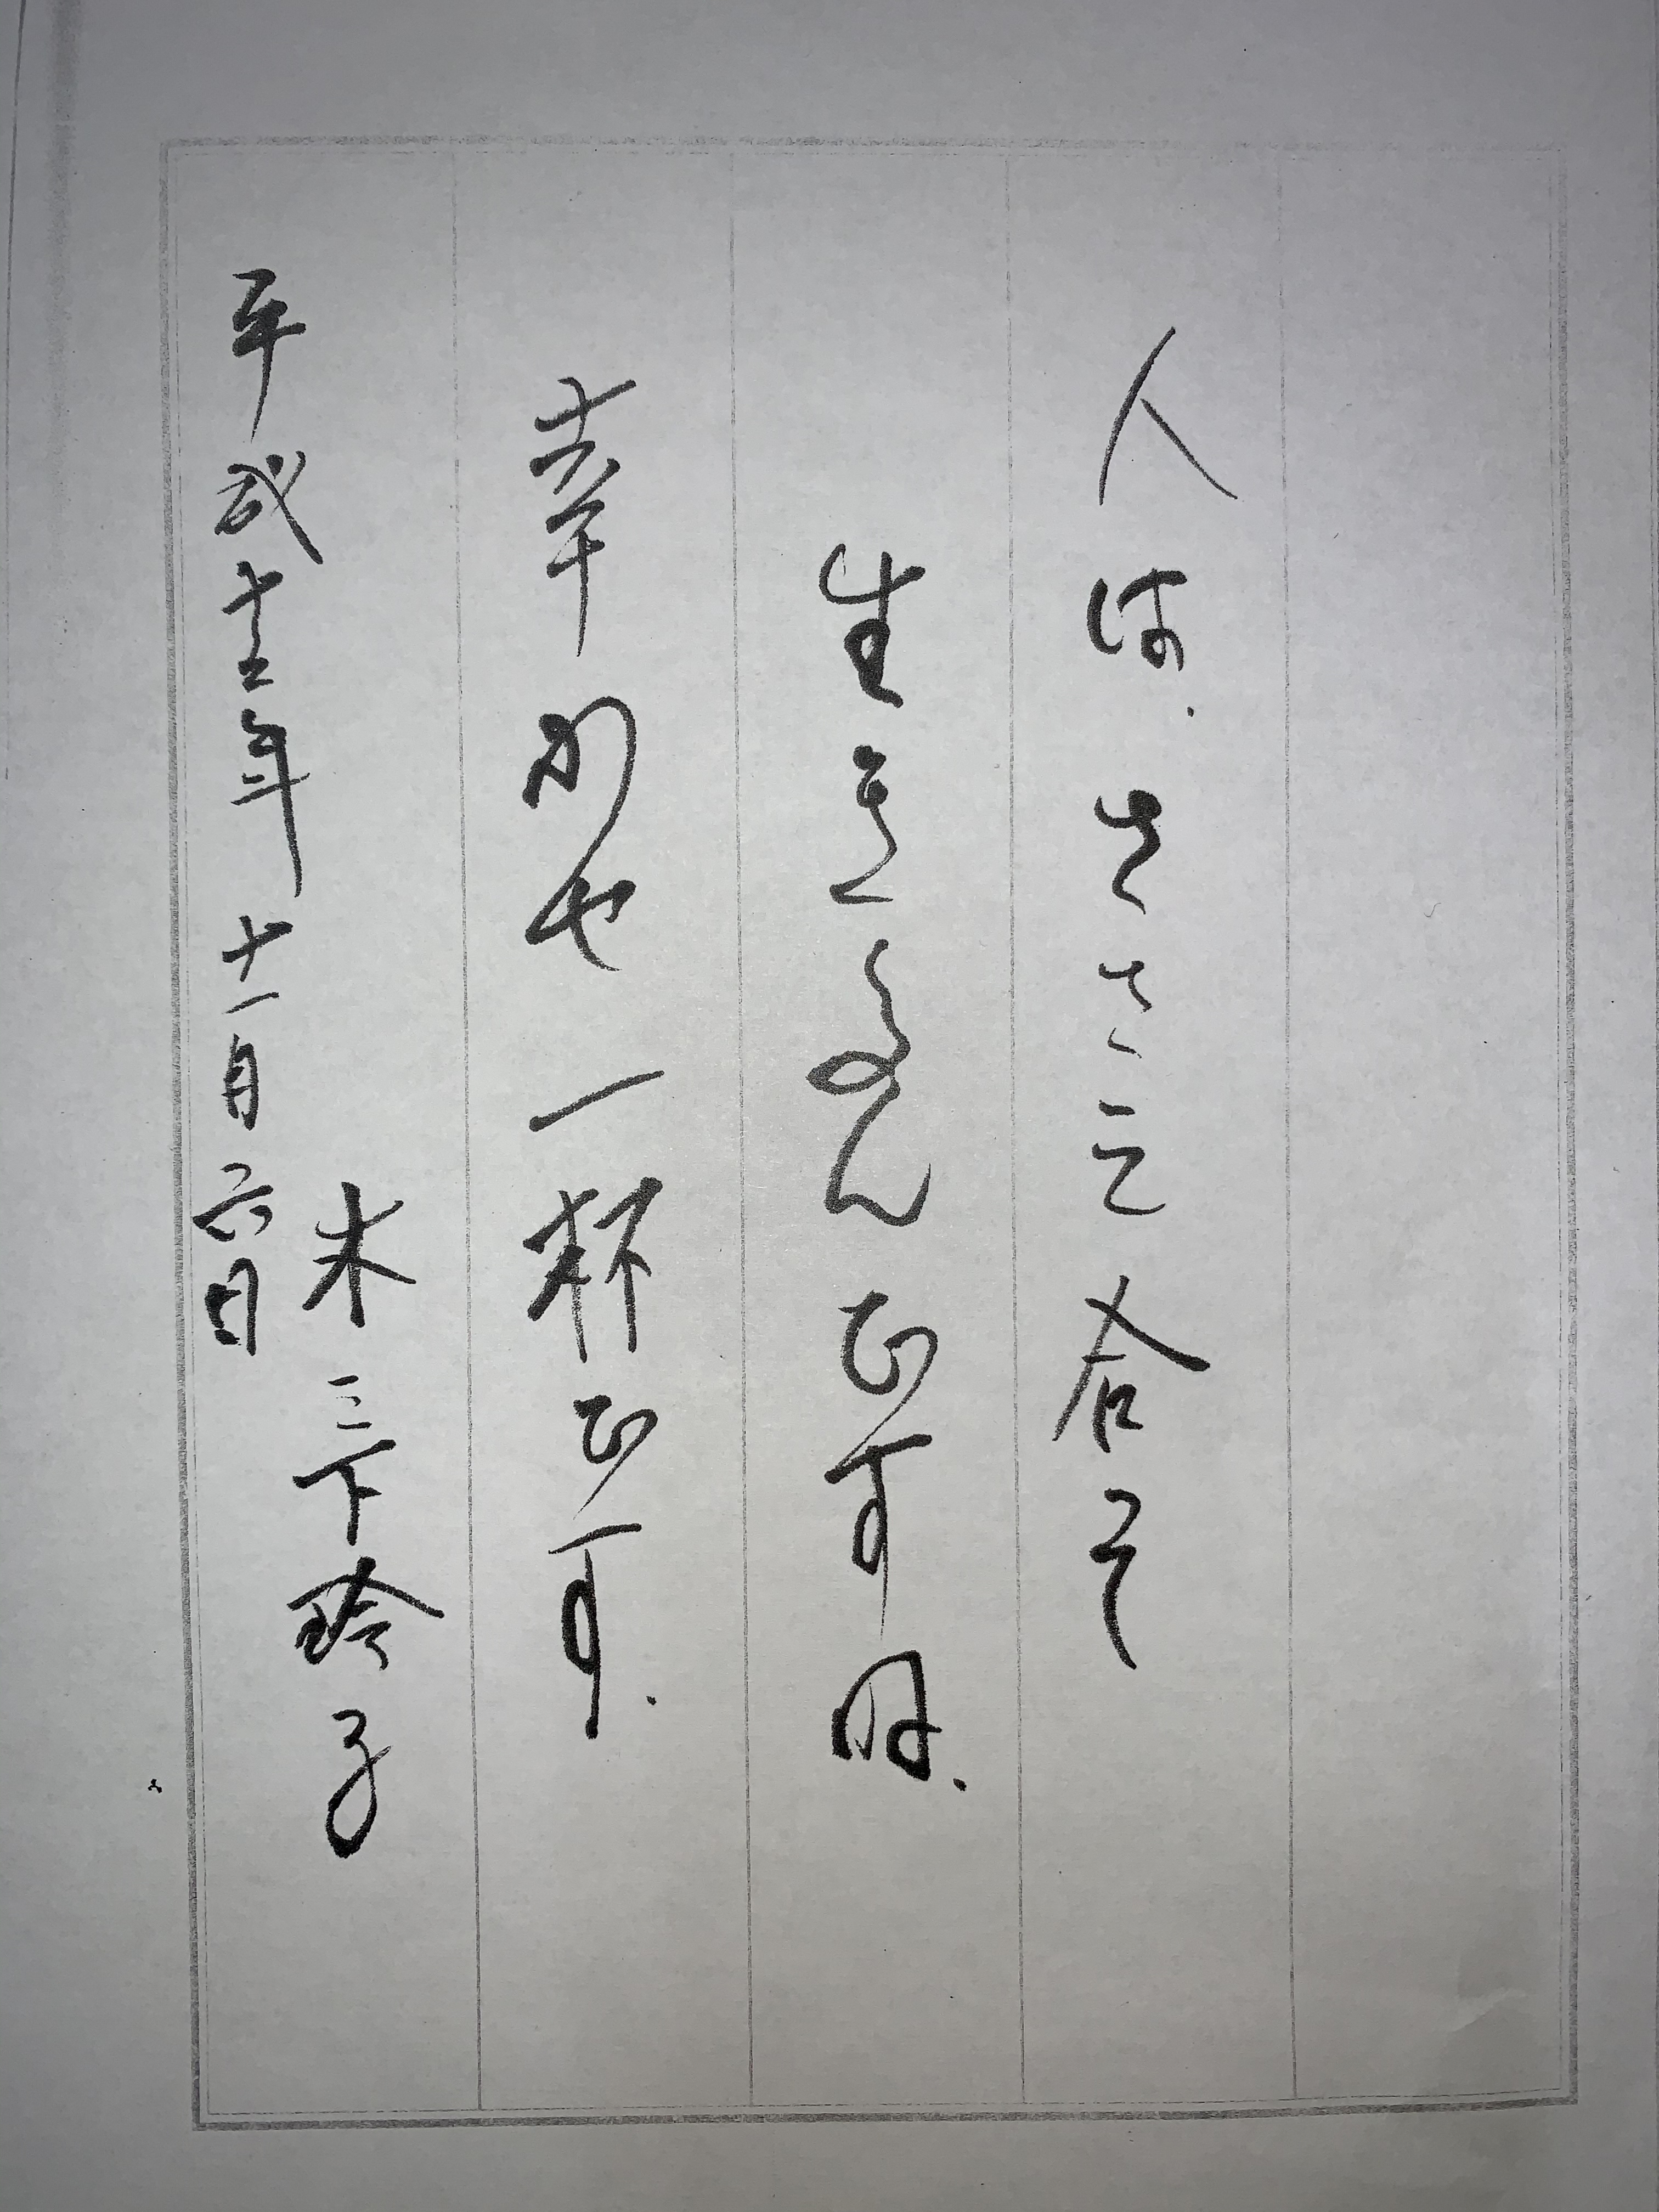 人は、ささえ合って
生きるんですね。
幸かせ一杯です。
平成十三年十一月六日
木三下玲子